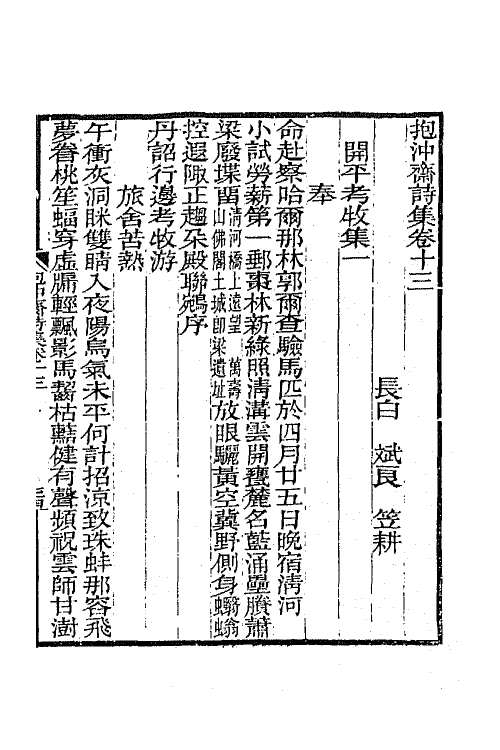 抱沖齋詩集卷十三
長白　斌良　笠耕
開平考牧集一
奉
命赴察哈爾那林郭爾查驗馬匹於四月廿五日晚宿淸河
小試勞薪第一郵棗林新綠照淸溝雲開甕麓名藍涌壘賸蕭
梁廢堞畱淸河橋上遠望　萬壽山佛閣土城卽梁遺址放眼驪黃空冀野側身蠮螉
控遐陬正趨朶殿聯鵷序
丹詔行邊考牧游
旅舍苦熱
午衝灰洞眯雙睛入夜陽烏氣未平何計招涼致珠蚌那容飛
夢眷桃笙蝠穿虛牖輕飄影馬齧枯䕸健有聲頻祝雲師甘澍